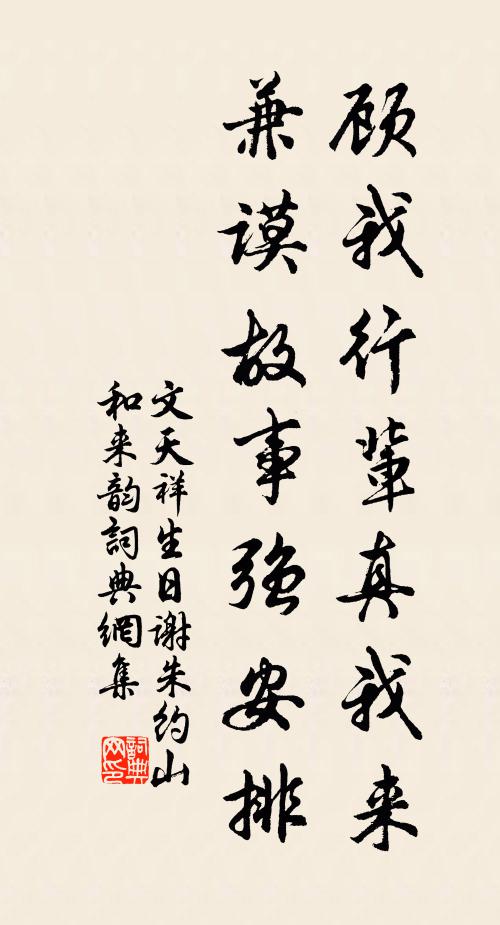 顾我行辈真我来
兼谟故事强安排
文天祥生日谢朱约山
和来韵词典網集
詞典網印